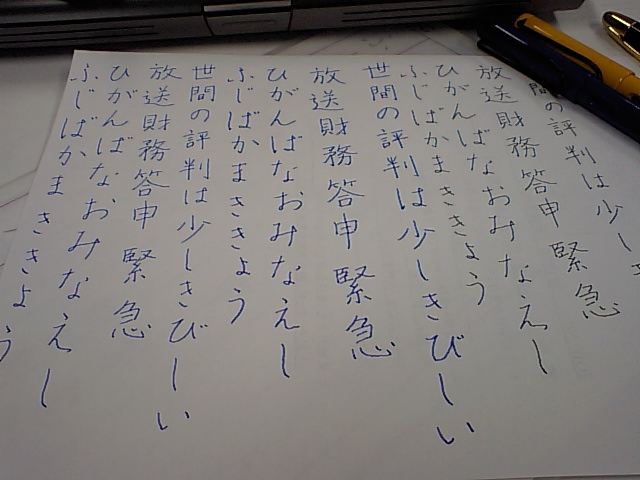 間の評判は少し
放送財務答申 緊急
ひがんばなおみなえし
ふじばかまききょう
世間の評判は少しきびしい
放送財務答申 緊急
ひがんばなおみなえし
ふじばかまききょう
世間の評判は少しきびしい
放送財務答申 緊急
ひがんばなおみなえし
ふじばかまききょう